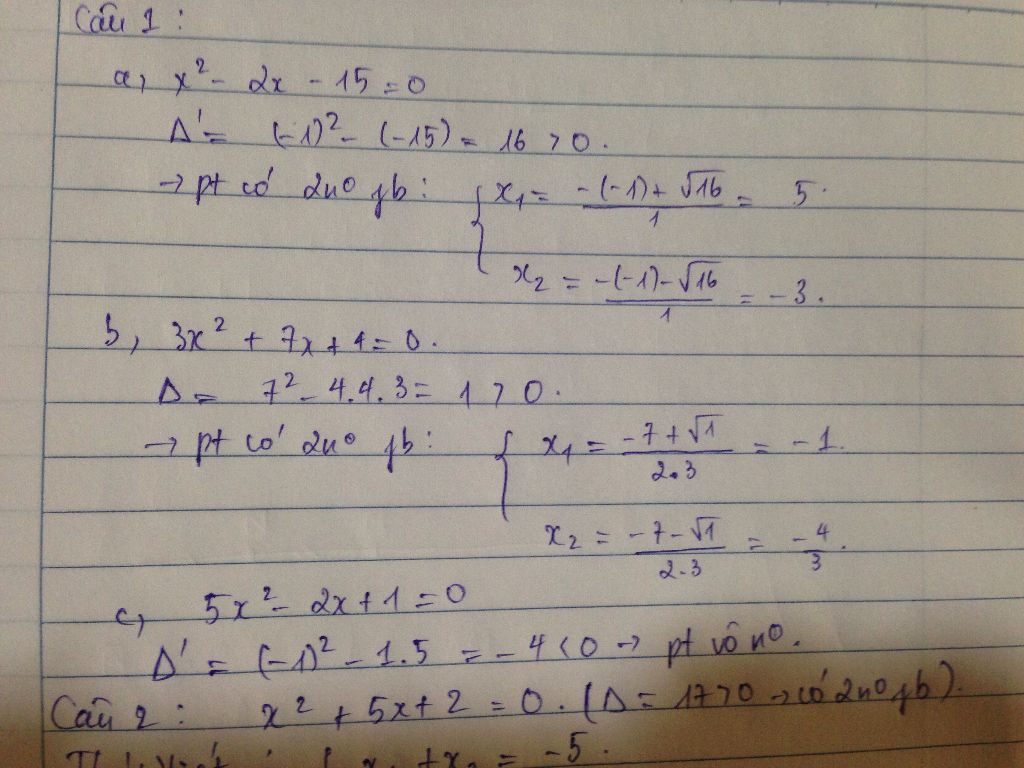 Câu 1 :
a, x² - 2x - 15 = 0
Δ' = (-1)² - (-15) = 16 > 0.
→ pt có 2n⁰ pb : { x₁ = (-(-1) + √16)/1 = 5.
x₂ = (-(-1) - √16)/1 = -3.
b, 3x² + 7x + 4 = 0.
Δ = 7² - 4.4.3 = 1 > 0.
→ pt có 2n⁰ pb : { x₁ = (-7 + √1)/(2.3) = -1.
x₂ = (-7 - √1)/(2.3) = -4/3.
c, 5x² - 2x + 1 = 0
Δ' = (-1)² - 1.5 = -4 < 0 → pt vô n⁰.
Câu 2 : x² + 5x + 2 = 0. (Δ = 17 > 0 → có 2n⁰ pb).
{ x₁ + x₂ = -5.